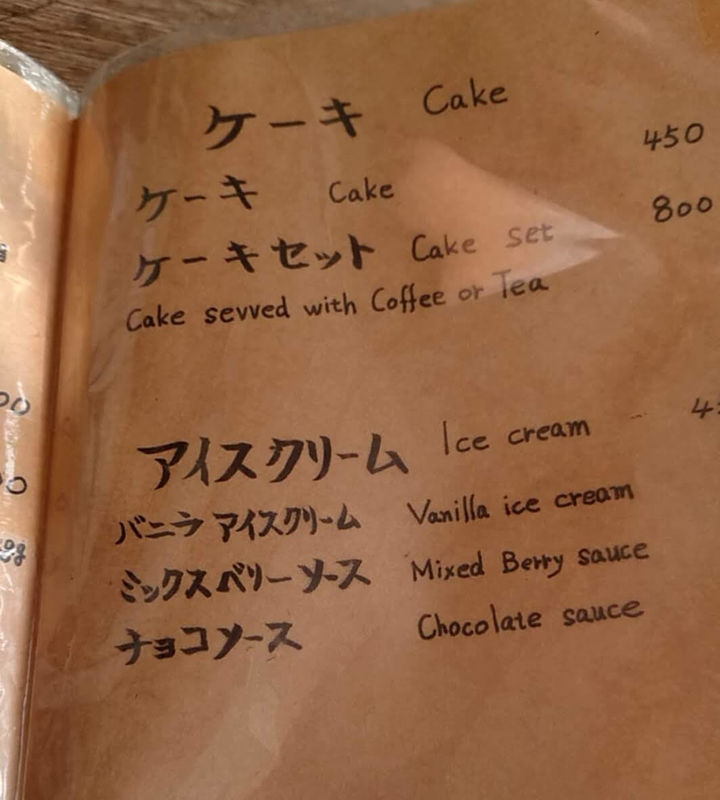 ケーキ Cake
ケーキ Cake 450
ケーキセット Cake set 800
Cake sevved with Coffee or Tea
アイスクリーム Ice cream
バニラ アイスクリーム Vanilla ice cream
ミックスベリーソース Mixed Berry sauce
チョコソース Chocolate sauce